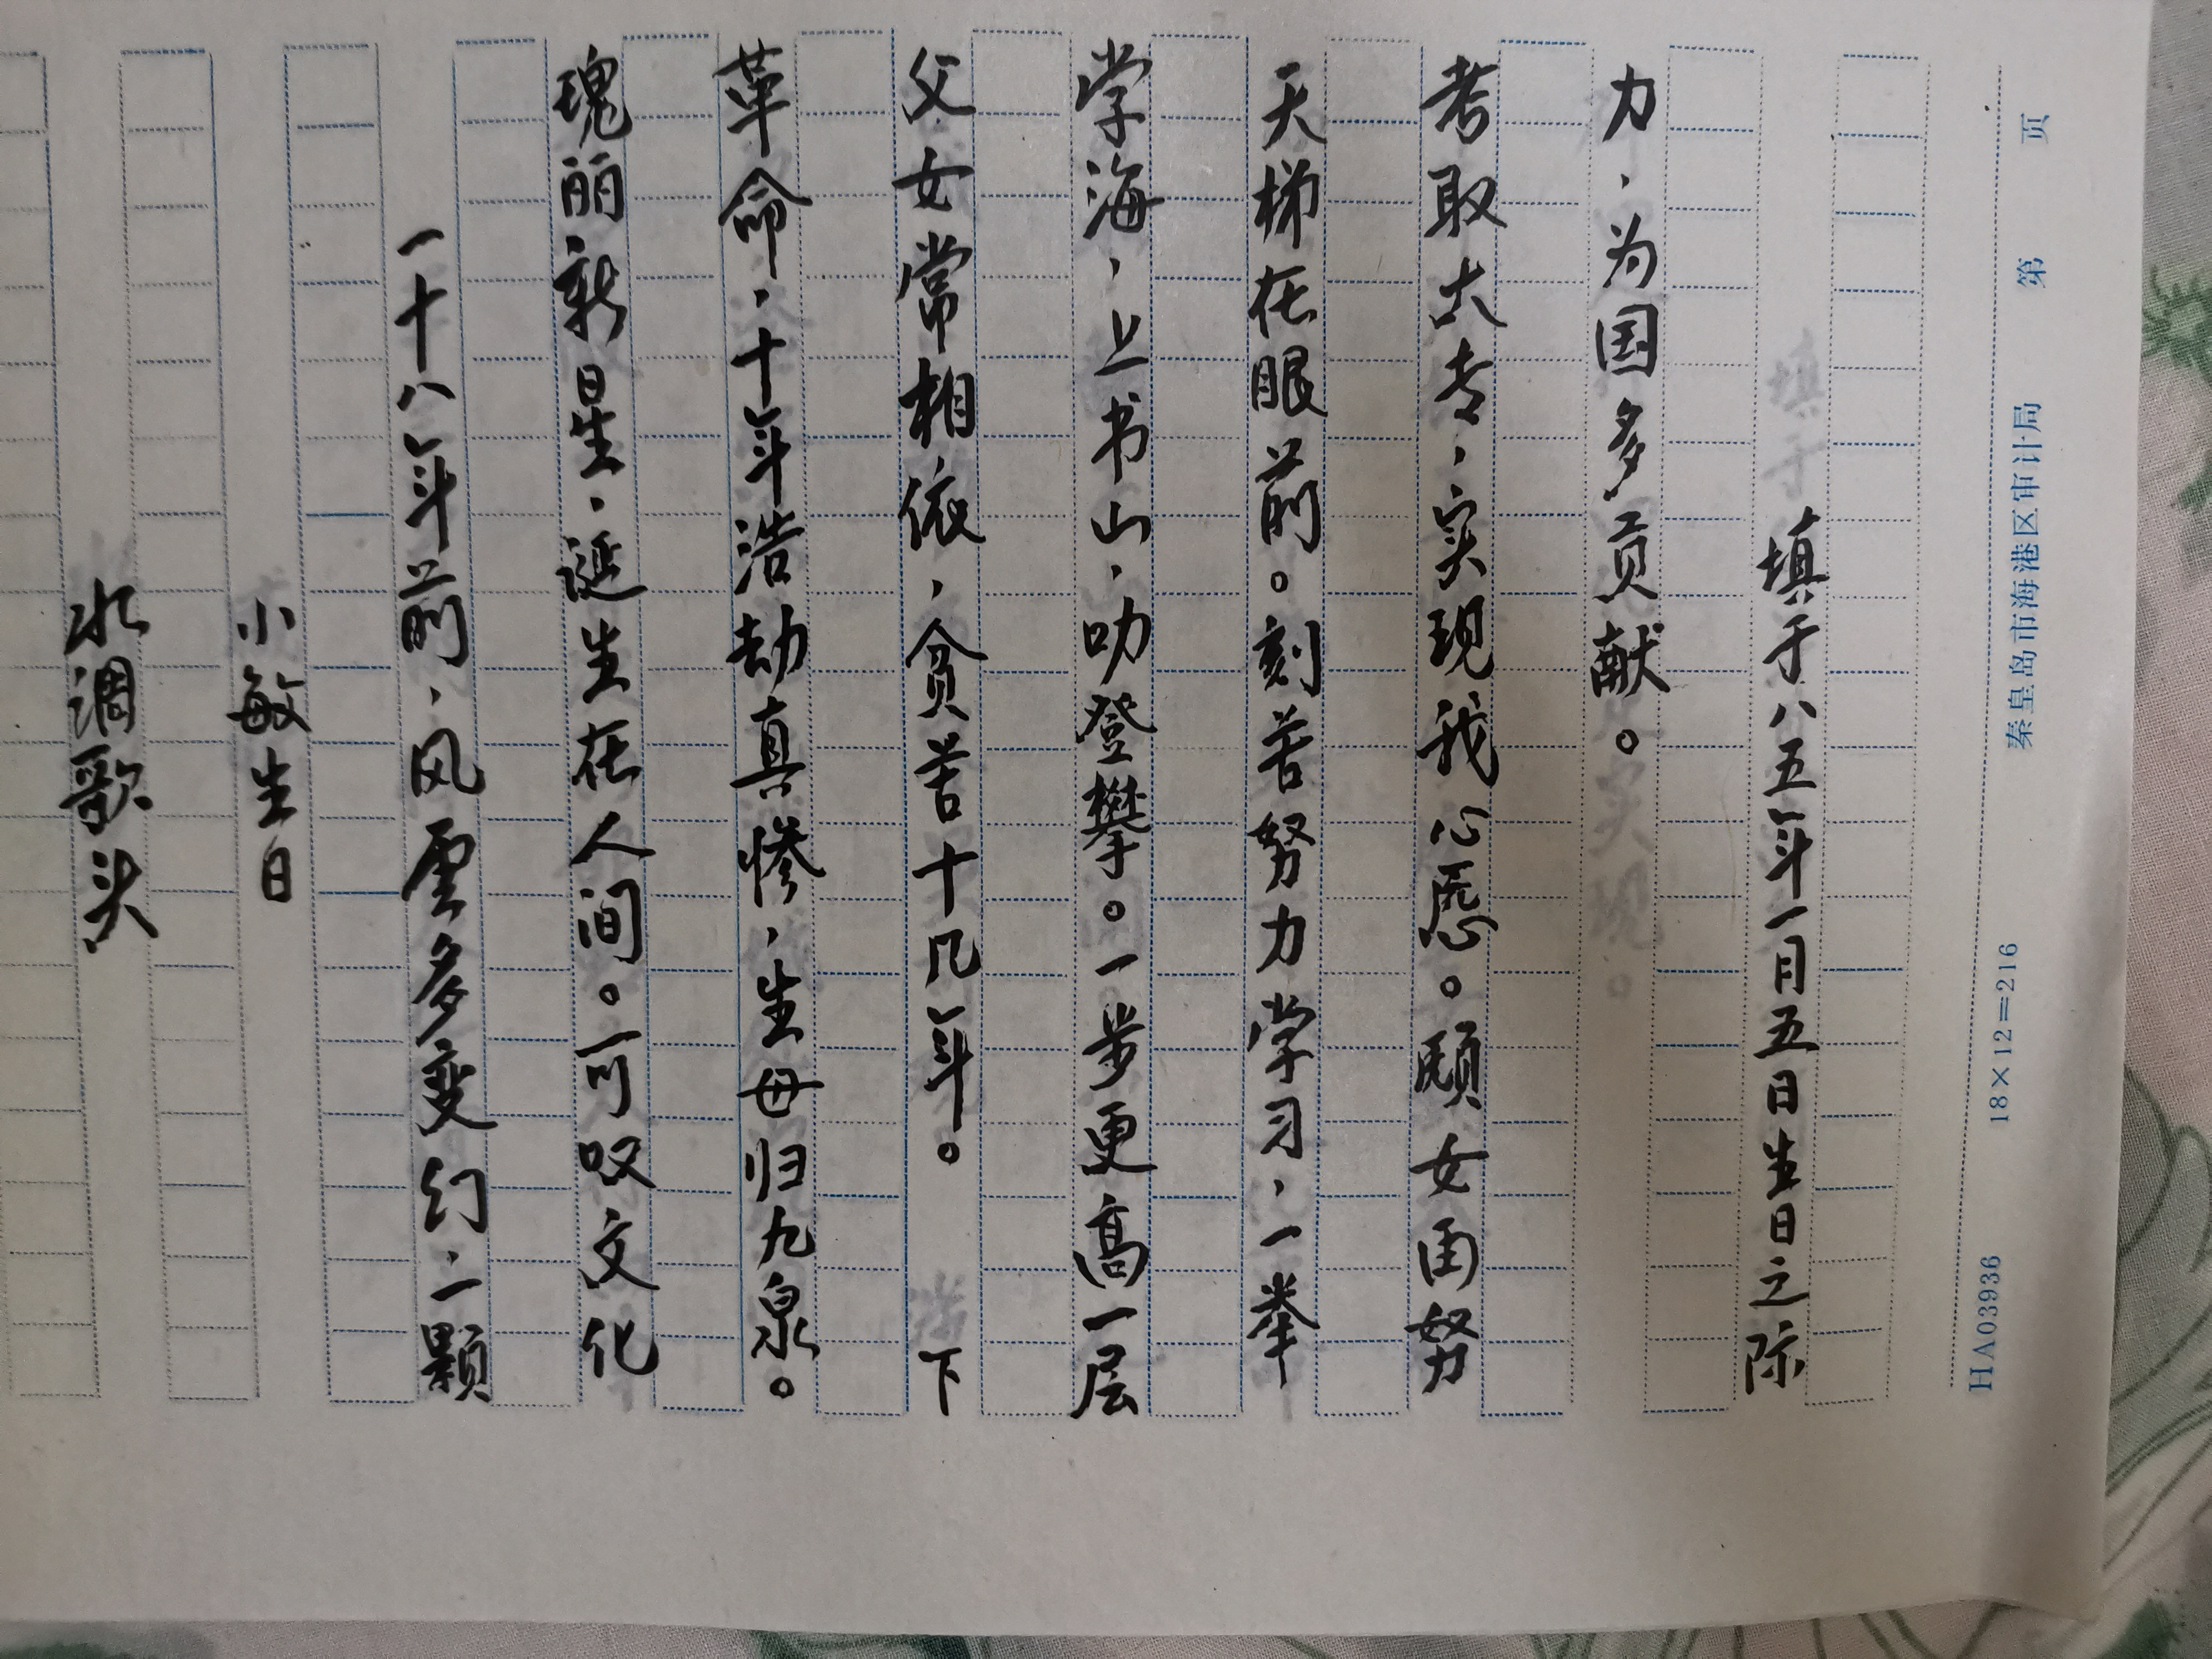 水调歌头
小敏生日
一十八年前，风云多变幻，一颗
瑰丽新星，诞生在人间。可叹文化
革命，十年浩劫真惨，生母归九泉。
父女常相依，贫苦十几年。 下
学海，上书山，叻登攀。一步更高一层
天梯在眼前。刻苦努力学习，一举
考取大专，实现我心愿。愿女再努
力，为国多贡献。
填于八五年一月五日生日之际
秦皇岛市海港区审计局 第 页
HA03936 18×12=216